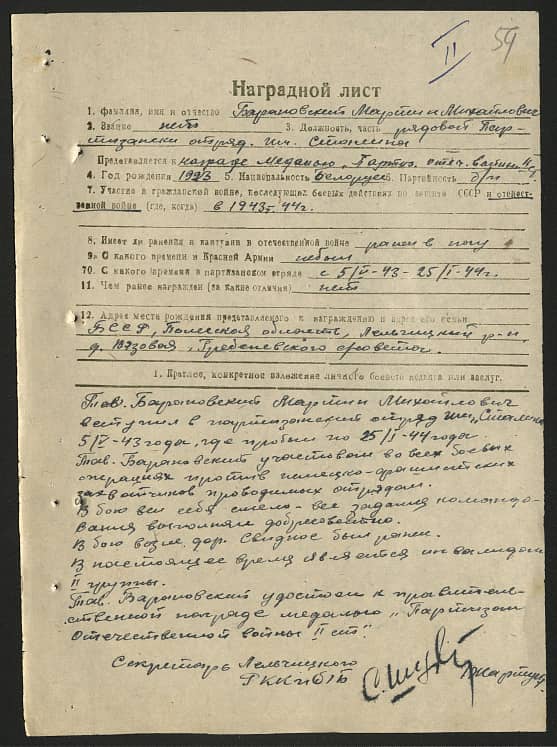 II 59
Наградной лист
1. Фамилия, имя и отчество Барановский Мартин Михайлович
2. Звание нет 3. Должность, часть рядовой Пар-
тизански отряд. им. Сталина
Представляется к награде Медалью „Партиз. отеч. войны II ст
4. Год рождения 1923 5. Национальность Белорус 6. Партийность б/п
7. Участие в гражданской войне, последующих боевых действиях по защите СССР и отечест-
венной войне (где, когда) в 1943-44г.
8. Имеет ли ранения и контузии в отечественной войне ранен в ногу
9. С какого времени в Красной Армии небыл
10. С какого времени в партизанском отряде с 5/V-43-25/I-44г.
11. Чем ранее награжден (за какие отличия) нет
12. Адрес места рождения представляемого к награждению и адрес его семьи
БССР, Полесская область, Лельчицкий р-н,
д. Вязовая, Гребеневского с/совета.
1. Краткое, конкретное изложение личного боевого подвига или заслуг.
Тов. Барановский Мартин Михайлович
вступил в партизанский отряд им. „Сталина
5/V-43 года, где пробыл по 25/I-44 года.
Тов. Барановский участвовал во всех боевых
операциях против немецко-фашистских
захватчиков проводимых отрядом.
В бою вел себя смело - все задания командо-
вания выполнял добросовестно.
В бою возле дер. Свидное был ранен.
В настоящее время является инвалидом
II группы.
Тов. Барановский удостоен к правитель-
ственной награде медалью „Партизан
Отечественной войны II ст".
Секретарь Лельчицкого
РККП(б)Б